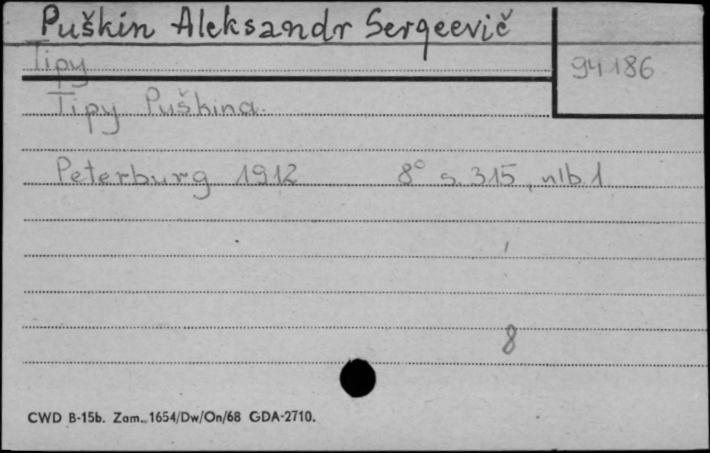 Puškin Aleksandr Sergeevič
Tipy
94186
Tipy Puškina.
Peterburg 1912 8° s. 315, nlb 1
8
CWD B-15b. Zam. 1654/Dw/On/68 GDA-2710.